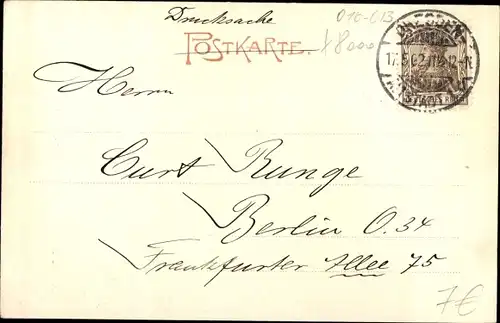 Drucksache
POSTKARTE.
DRESDEN
17.5.02 11-12V.
Herrn
Curt Runge
Berlin O.34
Frankfurter Allee 75
7€